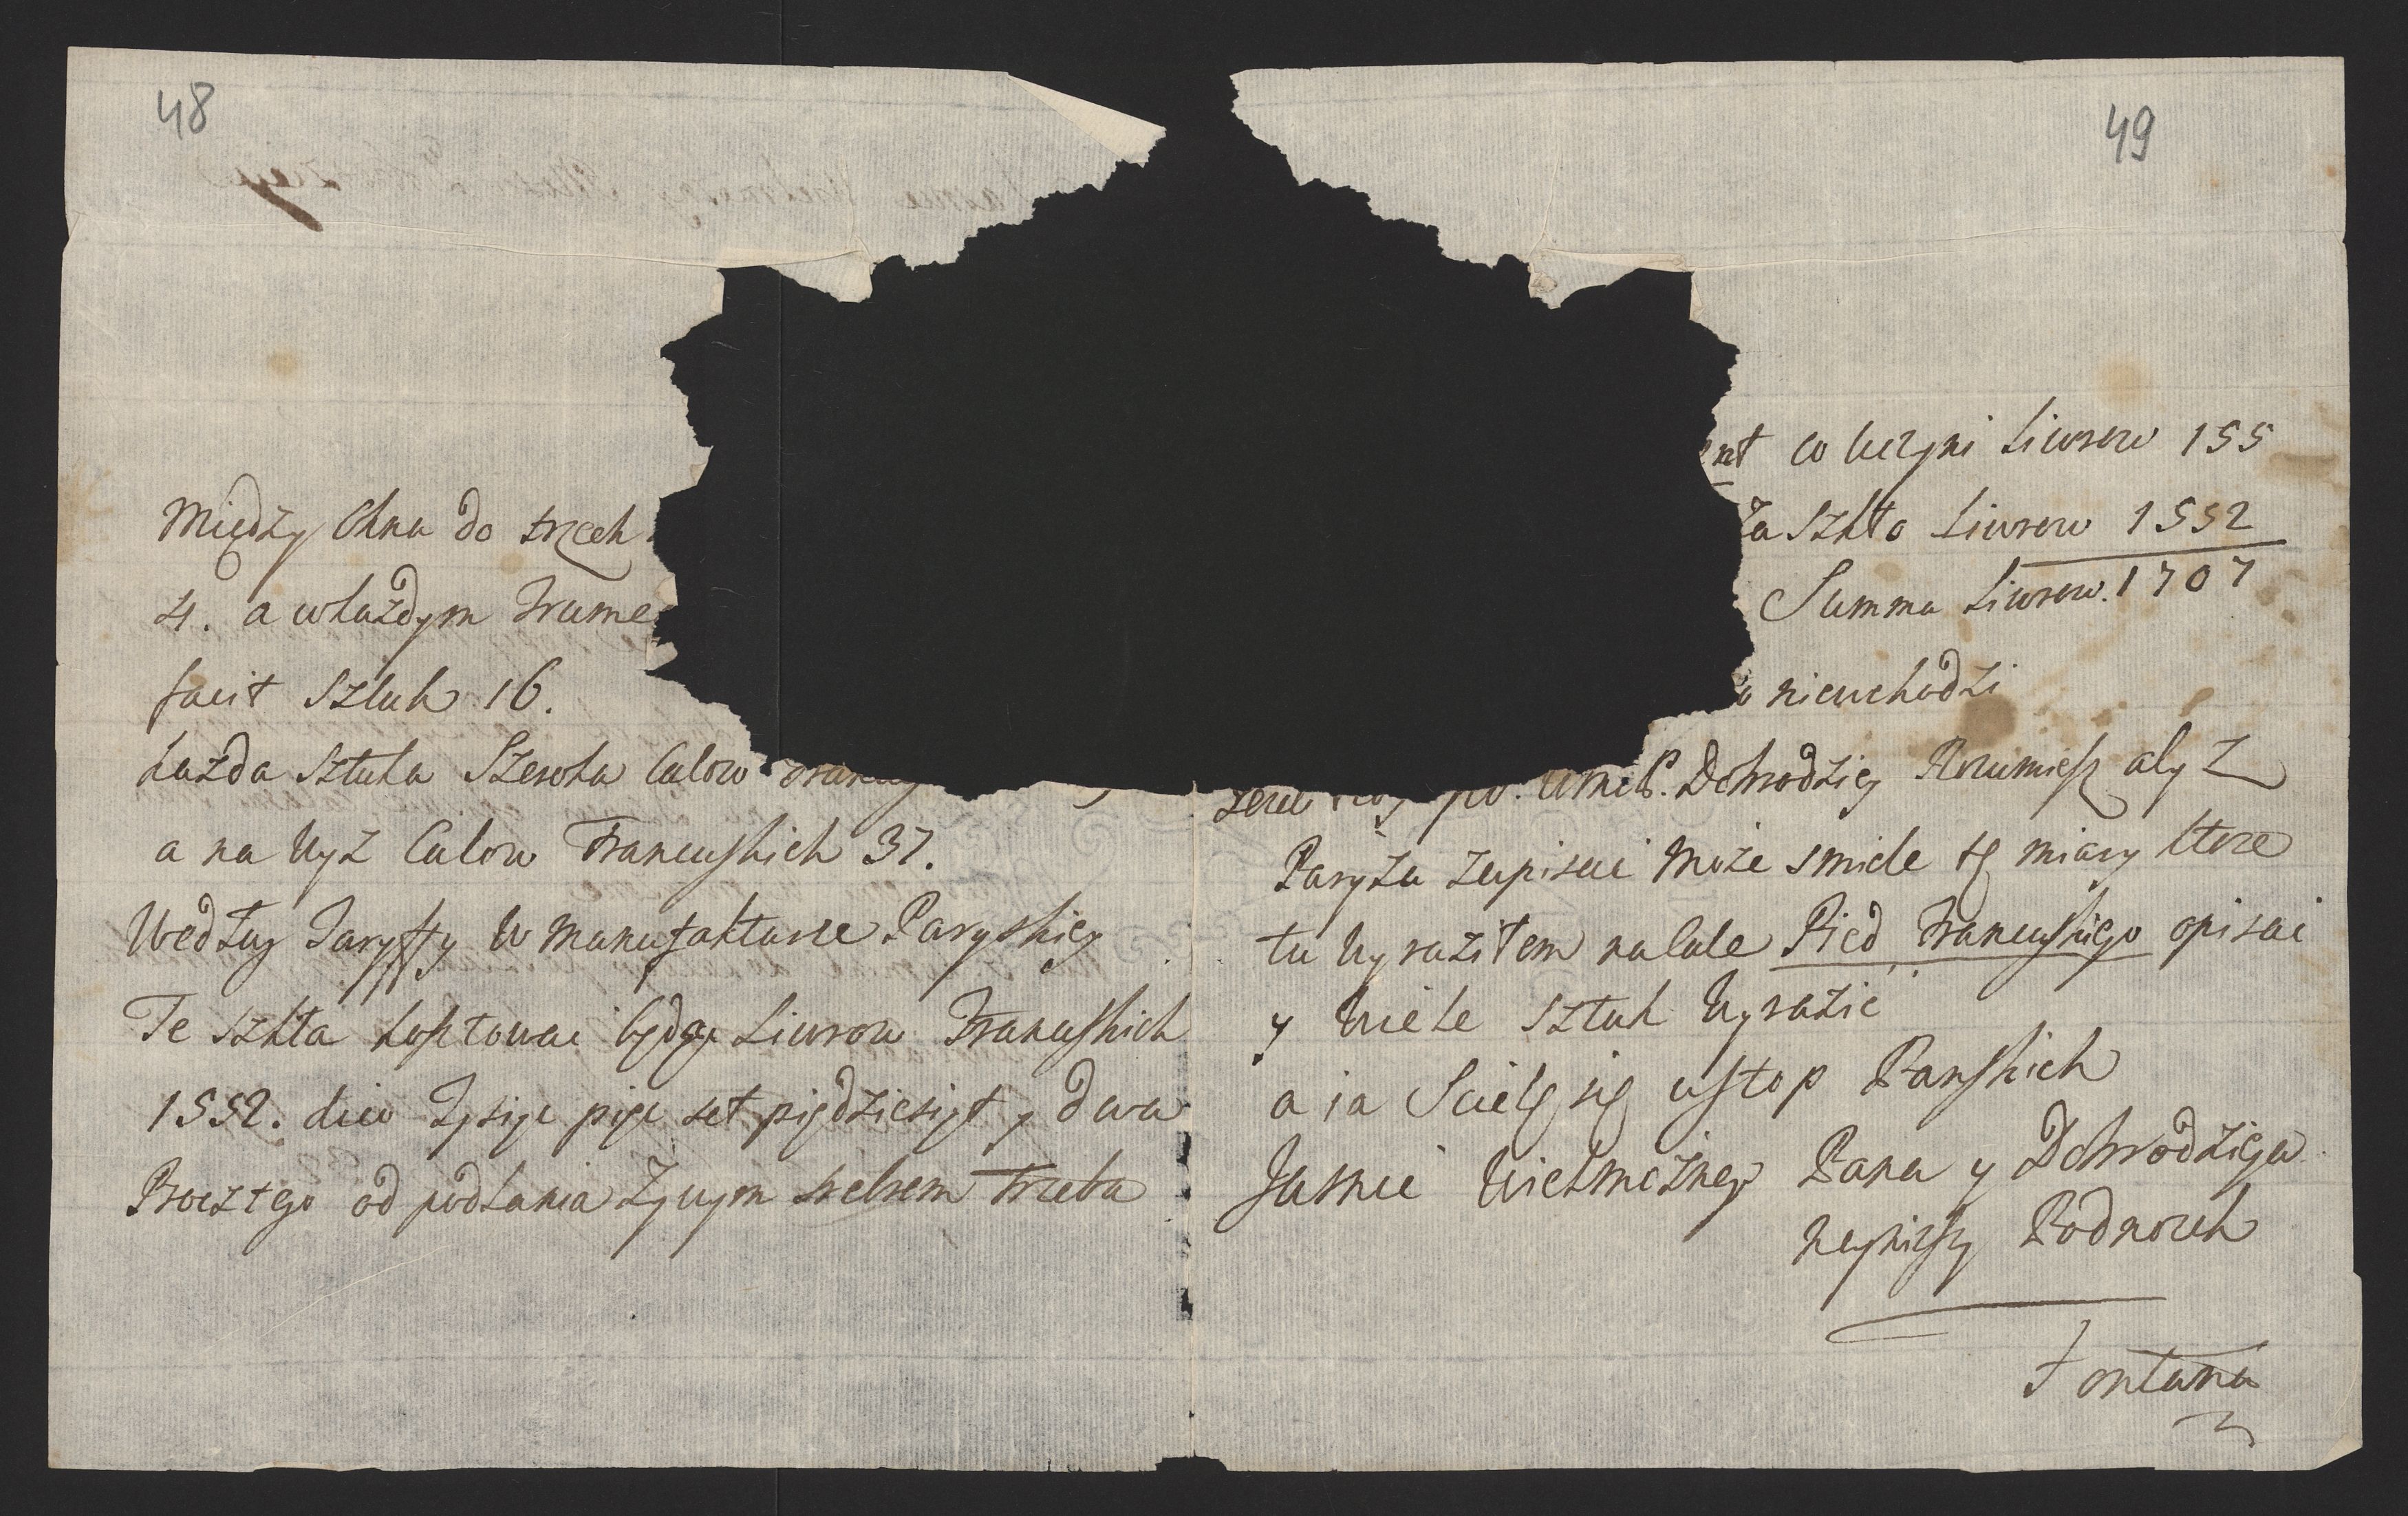 48
Między Okna do trzech
4. a wkażdym Trume
facit Sztuk 16.
każda Sztuka Szeroka Calow
a na wyż Calow Francuskich 37.
Według Taryffy w manufakturze Paryskiey
Te szkła kosztowac będą Liwrow Francuskich
1552. dico Tysiąc pięc set piędziesiąt y dwa
Procz tego od podłania żywym srebrem trzeba
49
nt co uczyni Liwrow 155
za Szkło Liwrow 1552
Summa Liwrow. 1707
niewchodzi
Dobrodziey Rozumiesz aby z
Paryża zapisac może smiele tę miary ktore
tu wyraziłem na cale Pied Francuskiego opisac
y wiele sztuk wyrazic
a ia Scielę się ustop Panskich
Jasnie Wielmożnego Pana y Dobrodzieja
nayniższy Podnozek
Fontana